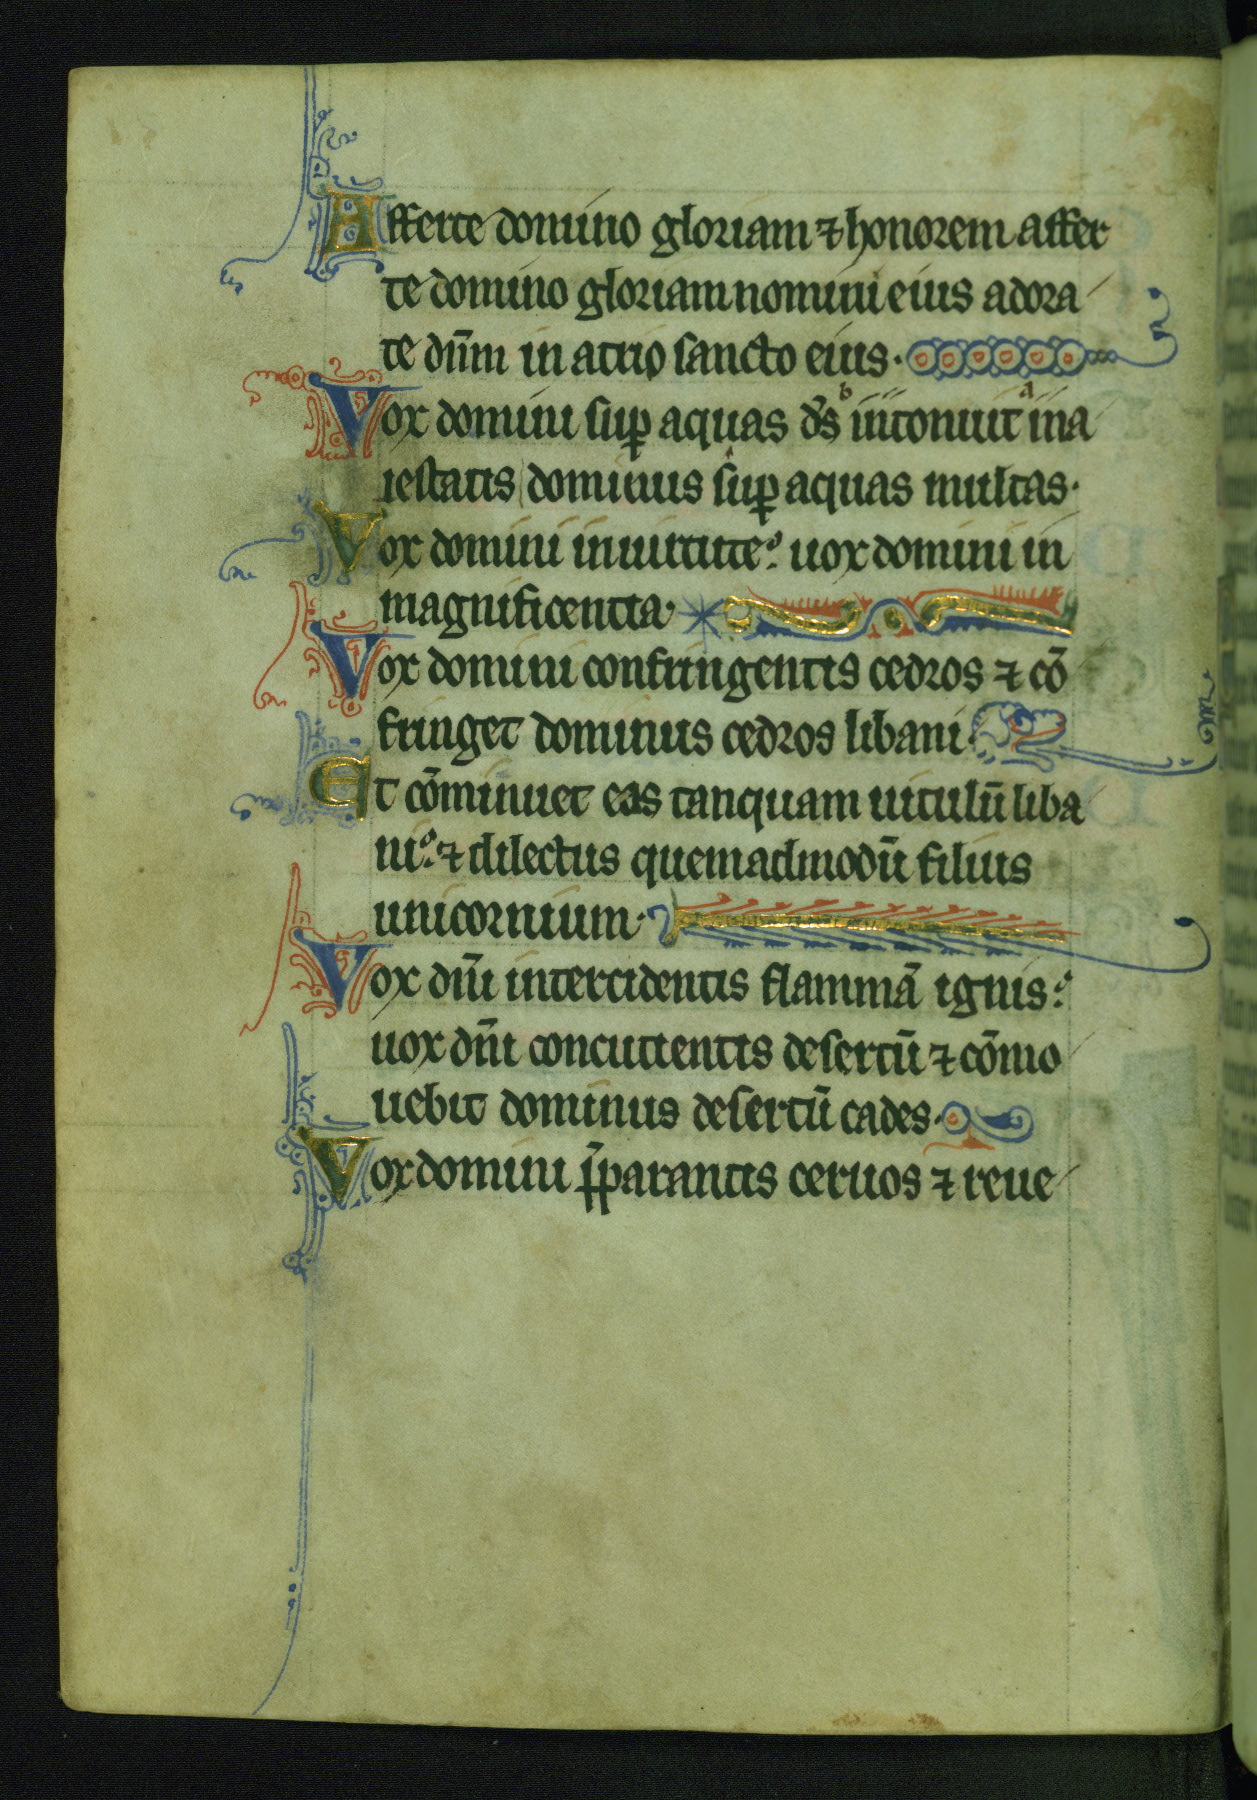 Afferte domino gloriam ⁊ honorem affer
te domino gloriam nomini eius adora
te dn̄m in atrio sancto eius·
Vox domini suꝑ aquas ds̄ intonuit ma
iestatis dominus suꝑ aquas multas·
Vox domini in uirtute: uox domini in
magnificentia·
Vox domini confringentis cedros ⁊ cō
fringet dominus cedros libani·
Et cōminuet eas tanquam uitulū liba
ni: ⁊ dilectus quemadmodū filius
unicornium·
Vox dn̄i intercidentis flammā ignis:
uox dn̄i concutientis desertū ⁊ cōmo
uebit dominus desertū cades·
Vox domini p̄parantis ceruos ⁊ reue